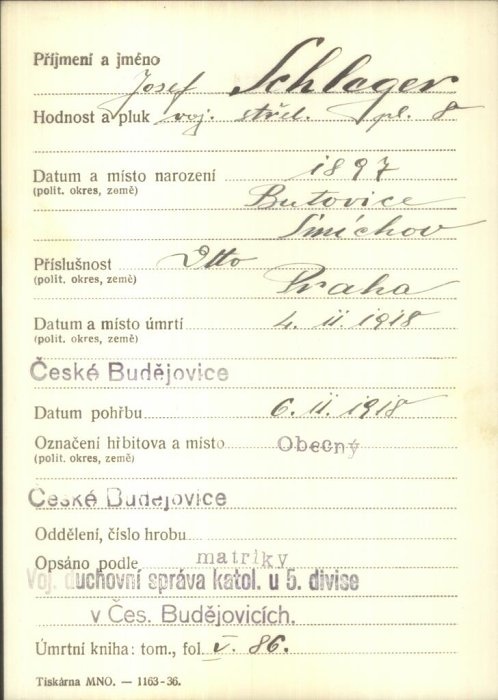 Příjmení a jméno
Josef Schlager
Hodnost a pluk voj. střel. pl. 8
Datum a místo narození 1897
(polit. okres, země) Butovice
Smíchov
Příslušnost Dtto
(polit. okres, země) Praha
Datum a místo úmrtí 4. II. 1918
(polit. okres, země)
České Budějovice
Datum pohřbu 6. II. 1918
Označení hřbitova a místo Obecný
(polit. okres, země)
České Budějovice
Oddělení, číslo hrobu
Opsáno podle matriky
Voj. duchovní správa katol. u 5. divise
v Čes. Budějovicích.
Úmrtní kniha: tom., fol. V. 86.
Tiskárna MNO. — 1163-36.